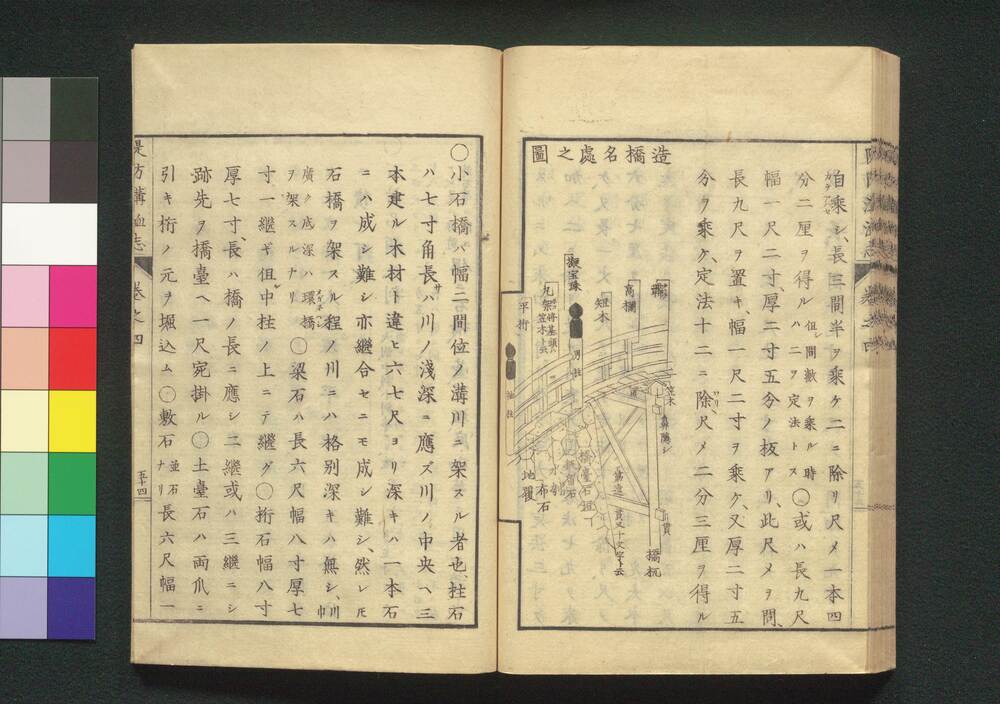 自乘シ、長三間半ヲ乘ケ二ニ除リ尺〆一本四
分二厘ヲ得ル但シ間數ヲ乘ル時ハ二ヲ定法トス〇或ハ長九尺
幅一尺二寸、厚二寸五分ノ板アリ、此尺〆ヲ問、
長九尺ヲ置キ、幅一尺二寸ヲ乘ケ、又厚二寸五
分ヲ乘ケ、定法十二ニ除リ、尺〆二分三厘ヲ得ル
造橋名處之圖
高欄
短木
觀宝珠
男柱
平桁
笠木
貫
橋杭
橋臺石垣
水
布石
地覆
〇小石橋ハ幅二間位ノ溝川ニ架スル者也、拄石
ハ七寸角長サハ川ノ淺深ニ應ズ川ノ中央ヘ三
本建ル木材ト違ヒ六七尺ヨリ深キハ一本石
ニハ成シ難シ亦繼合セニモ成シ難シ、然レ𪜈
石橋ヲ架スル程ノ川ニハ格別深キハ無シ、川巾
廣ク底深ハ環橋ヲ架スルナリ〇梁石ハ長六尺幅八寸厚七
寸一繼ギ但中拄ノ上ニテ繼グ〇桁石幅八寸
厚七寸、長ハ橋ノ長ニ應シ二繼或ハ三繼ニシ
跡先ヲ橋臺ヘ一尺宛掛ル〇土臺石ハ両爪ニ
引キ桁ノ元ヲ堀込ム〇敷石並石ナリ長六尺幅一
堤防溝洫志
卷之四
五十四